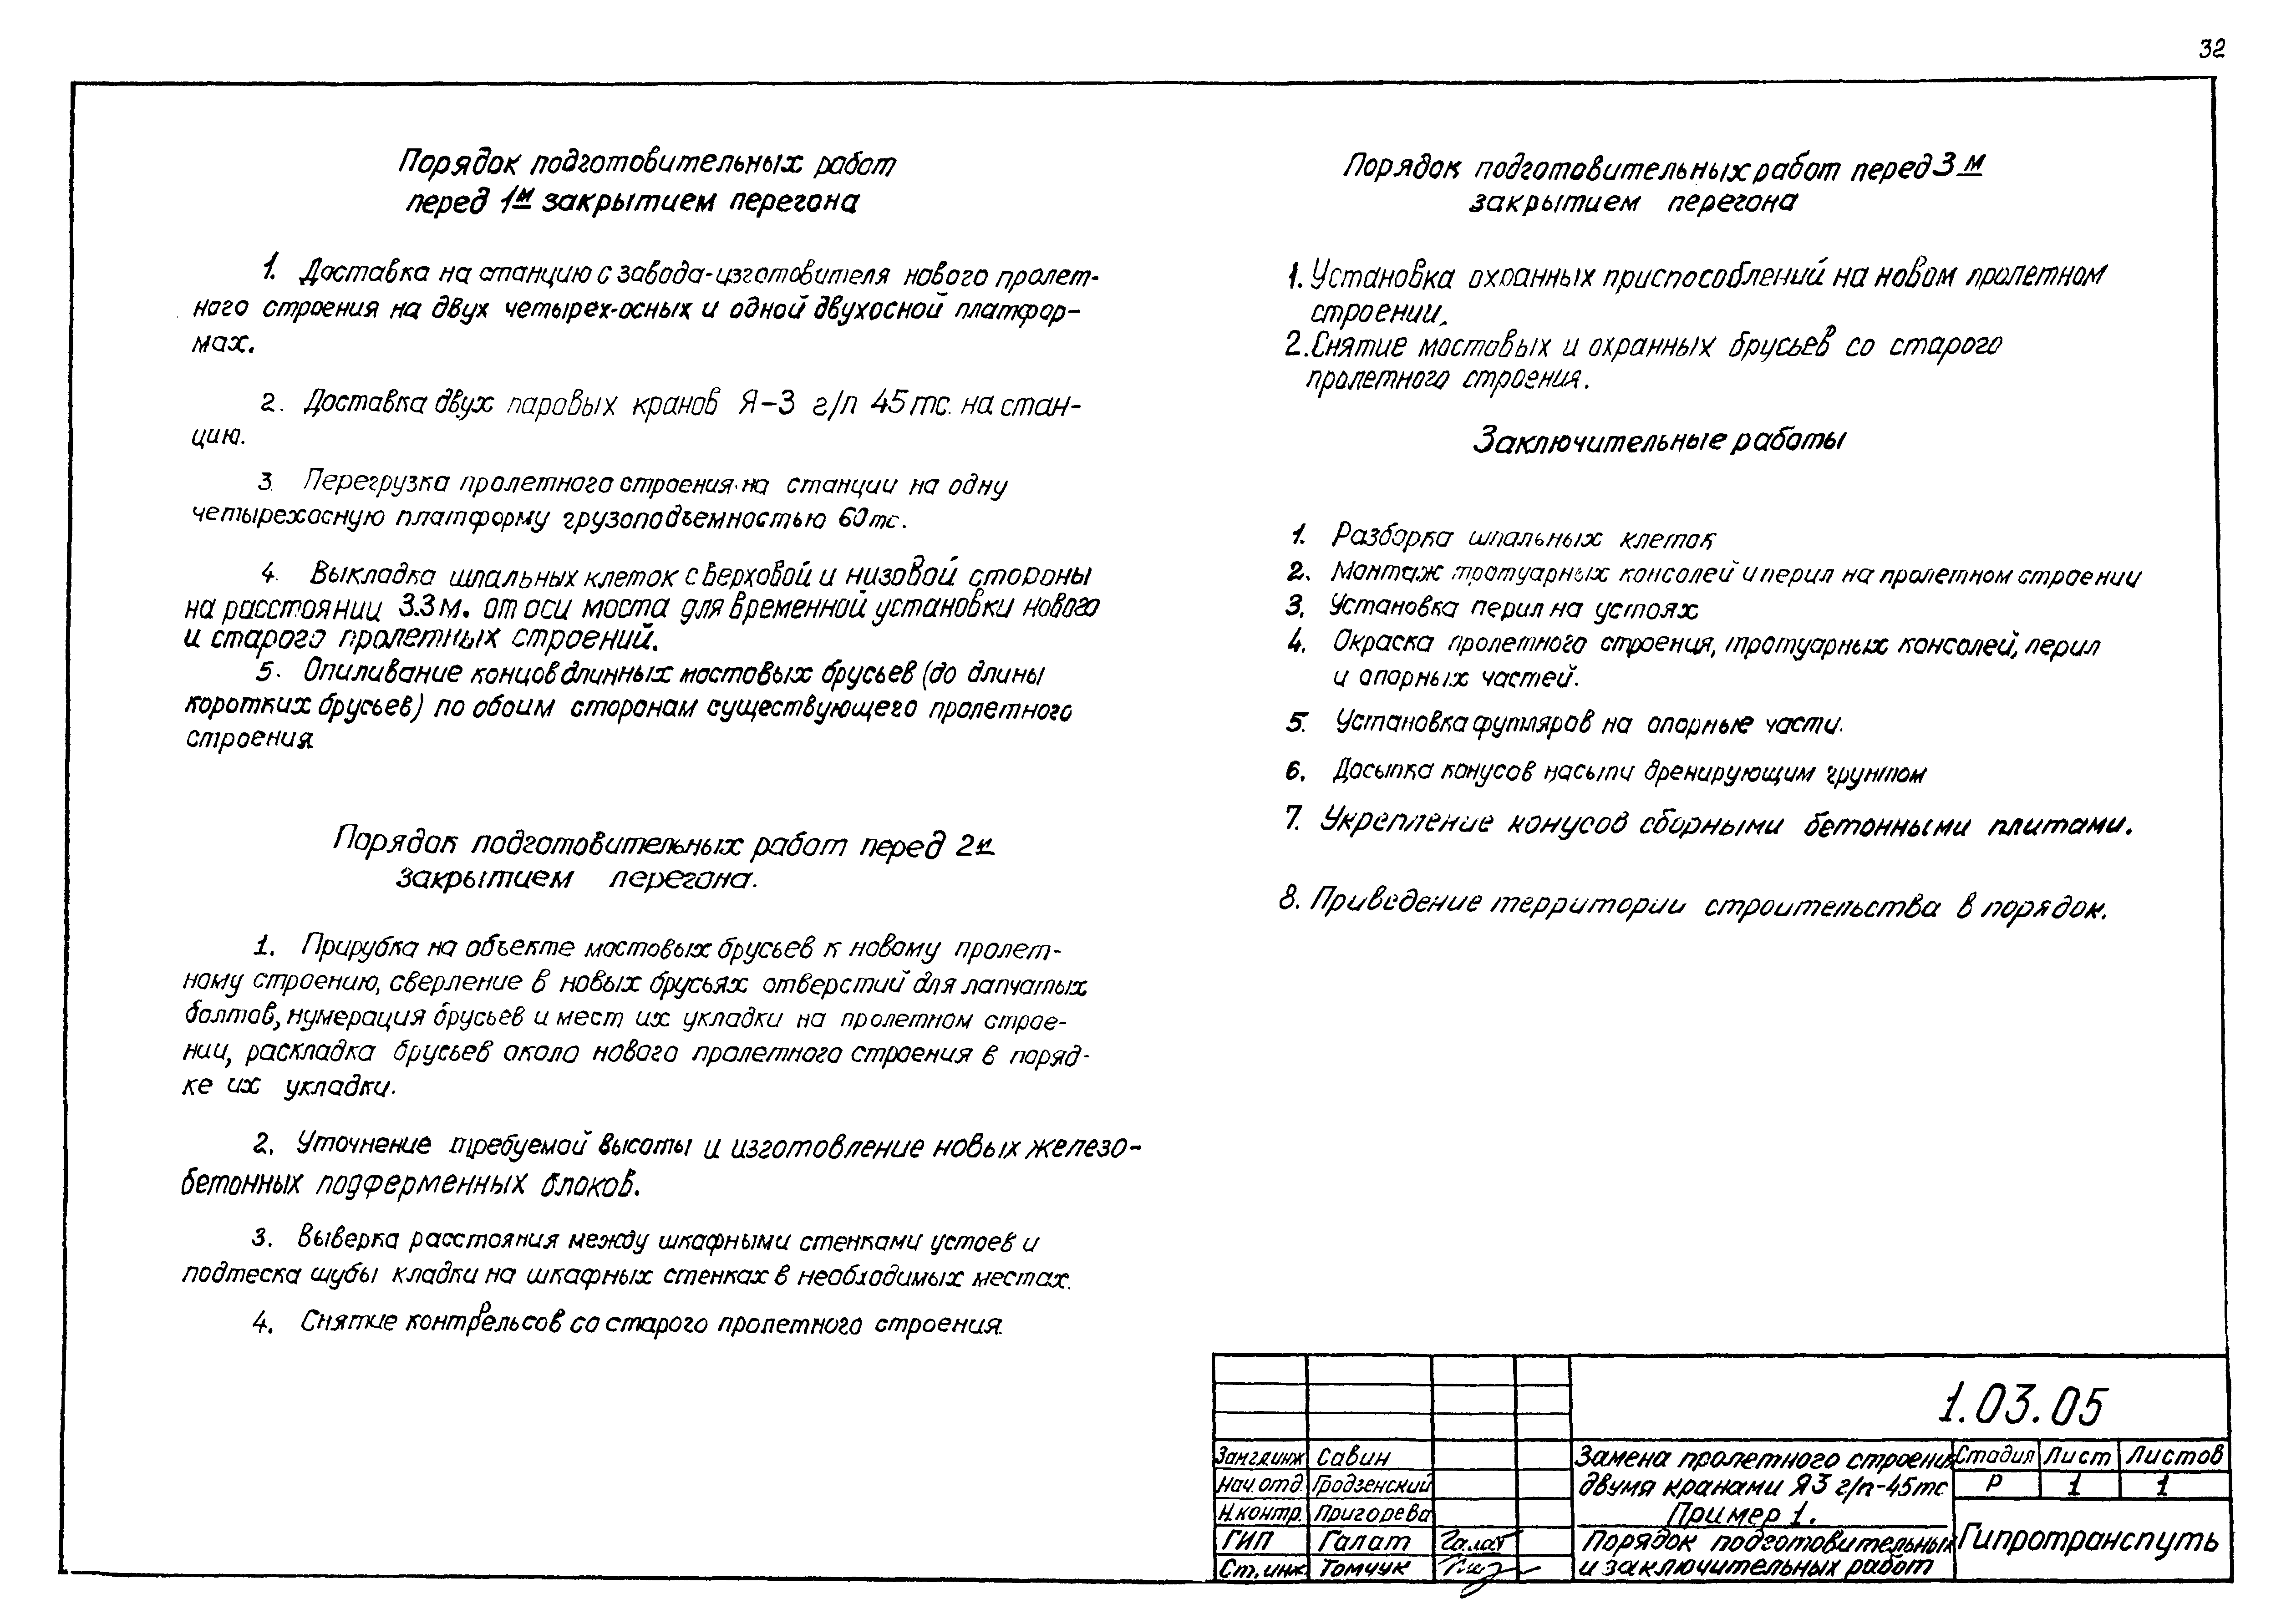 32
Порядок подготовительных работ
перед 1м закрытием перегона
1. Доставка на станцию с завода-изготовителя нового пролет-
ного строения на двух четырех-осных и одной двухосной платфор-
мах.
2. Доставка двух паровых кранов Я-3 г/п 45тс. на стан-
цию.
3. Перегрузка пролетного строения на станции на одну
четырехосную платформу грузоподъемностью 60тс.
4. Выкладка шпальных клеток с верховой и низовой стороны
на расстоянии 3.3м. от оси моста для временной установки нового
и старого пролетных строений.
5. Опиливание концов длинных мостовых брусьев (до длины
коротких брусьев) по обоим сторонам существующего пролетного
строения
Порядок подготовительных работ перед 2м
закрытием перегона.
1. Прирубка на объекте мостовых брусьев к новому пролет-
ному строению, сверление в новых брусьях отверстий для лапчатых
болтов, нумерация брусьев и мест их укладки на пролетном строе-
нии, раскладка брусьев около нового пролетного строения в поряд-
ке их укладки.
2. Уточнение требуемой высоты и изготовление новых железо-
бетонных подферменных блоков.
3. Выверка расстояния между шкафными стенками устоев и
подтеска шубы кладки на шкафных стенках в необходимых местах.
4. Снятие контррельсов со старого пролетного строения.
Порядок подготовительных работ перед 3м
закрытием перегона
1. Установка охранных приспособлений на новом пролетном
строении.
2. Снятие мостовых и охранных брусьев со старого
пролетного строения.
Заключительные работы
1. Разборка шпальных клеток
2. Монтаж тротуарных консолей и перил на пролетном строении
3. Установка перил на устоях
4. Окраска пролетного строения, тротуарных консолей, перил
и опорных частей.
5. Установка футляров на опорные части.
6. Досыпка конусов насыпи дренирующим грунтом
7. Укрепление конусов сборными бетонными плитами.
8. Приведение территории строительства в порядок.
1.03.05
Зам.гл.инж Савин
Нач.отд. Гродзенский
Н.контр. Пригорева
ГИП Галат Галат
Ст.инж. Томчук
Замена пролетного строения
двумя кранами Я3 г/п-45тс
Пример 1.
Порядок подготовительных
и заключительных работ
Стадия Лист Листов
Р 1 1
Гипротранспуть